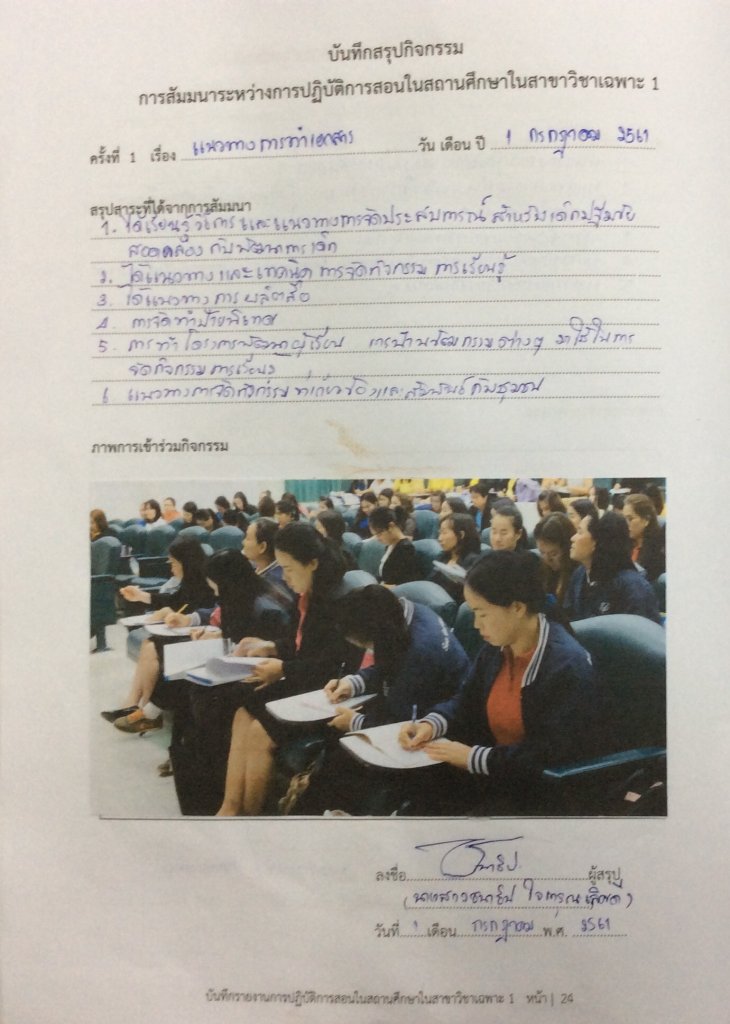 บันทึกสรุปกิจกรรม
การสัมมนาระหว่างการปฏิบัติการสอนในสถานศึกษาในสาขาวิชาเฉพาะ 1
ครั้งที่ 1 เรื่อง แนวทางการทำเอกสาร วัน เดือน ปี 1 กรกฎาคม 2561
สรุปสาระที่ได้จากการสัมมนา
1. ได้เรียนรู้วิธีการ และแนวทางการจัดประสบการณ์ สำหรับเด็กปฐมวัย
สอดคล้อง กับพัฒนาการเด็ก
2. ได้แนวทาง และเทคนิค การจัดกิจกรรม การเรียนรู้
3. ได้แนวทาง การ ผลิตสื่อ
4. การจัดทำป้ายนิเทศ
5. การทำ โครงการพัฒนาผู้เรียน การนำนวัตกรรมต่างๆ มาใช้ในการ
จัดกิจกรรม การเรียนรู้
6 แนวทางการจัดกิจกรรม ที่เกี่ยวข้องและสัมพันธ์ กับชุมชน
ภาพการเข้าร่วมกิจกรรม
ลงชื่อ ผู้สรุป
(นางสาว
วันที่ 1 เดือน กรกฎาคม พ.ศ. 2561
บันทึกรายงานการปฏิบัติการสอนในสถานศึกษาในสาขาวิชาเฉพาะ 1 หน้า | 24